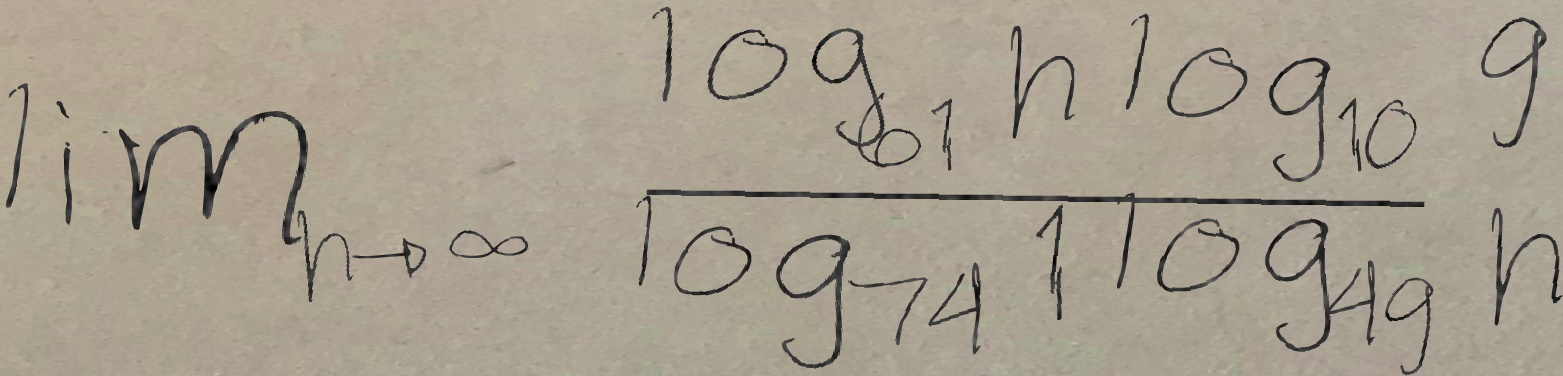 \lim_{n \to \infty} \frac{\log_{61} n \log_{10} 9}{\log_{74} 1 \log_{49} n}